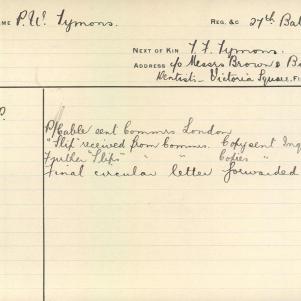 AME P. W. Tymons. REG. &C 27th Bat
NEXT OF KIN T. F. Tymons.
ADDRESS c/o Messrs Brown & B
Dentist – Victoria Square.
Cable sent Commrs London
"Slip" received from Commrs. Copy sent Inq
Further "Slips" " " Copies "
Final circular letter forwarded